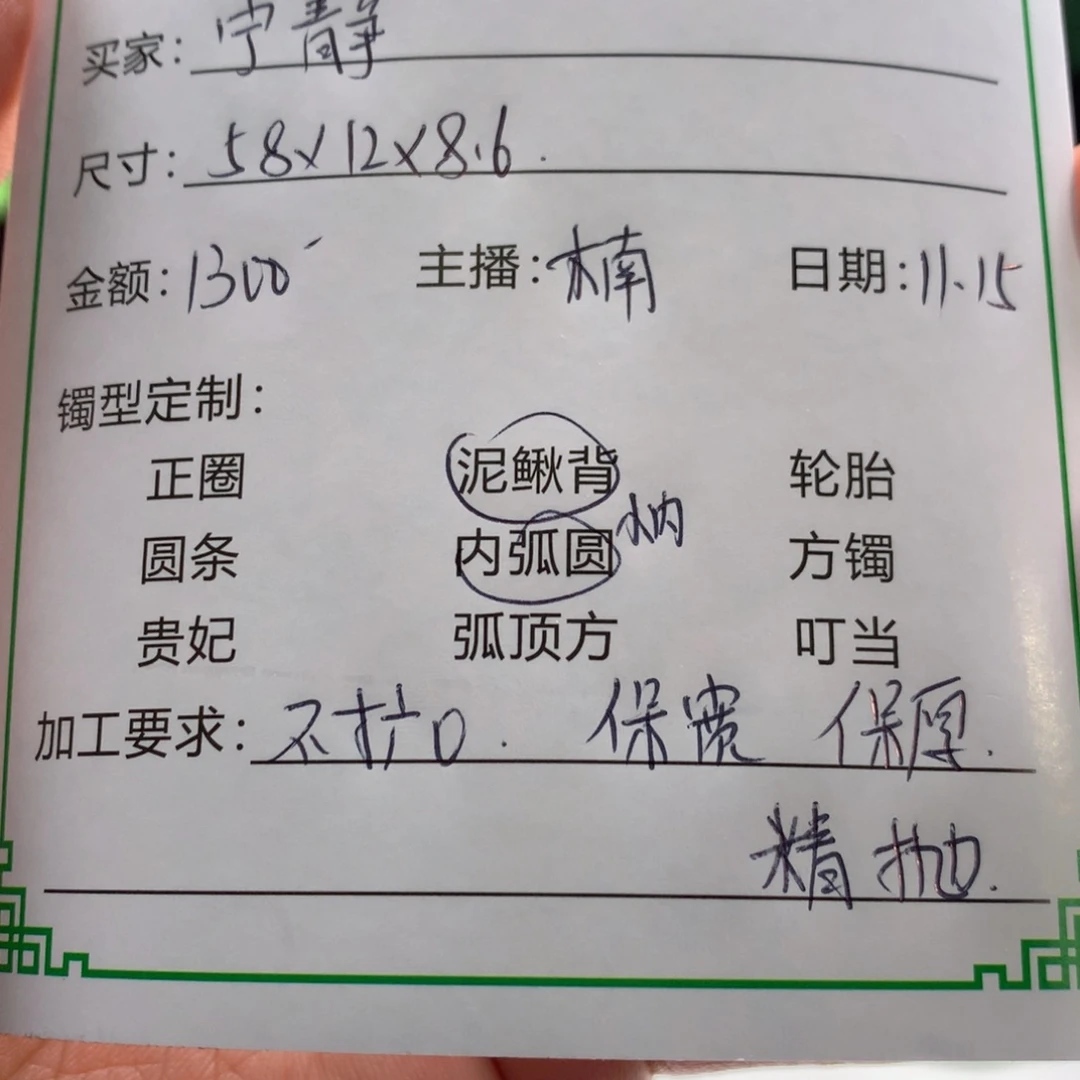 买家：宁静
尺寸：58×12×8.6
金额：1300 主播：楠 日期：11.15
镯型定制：
正圈 泥鳅背 轮胎
圆条 内弧圆 方镯
贵妃 弧顶方 叮当
加工要求：不扩口. 保宽 保厚.
精抛.